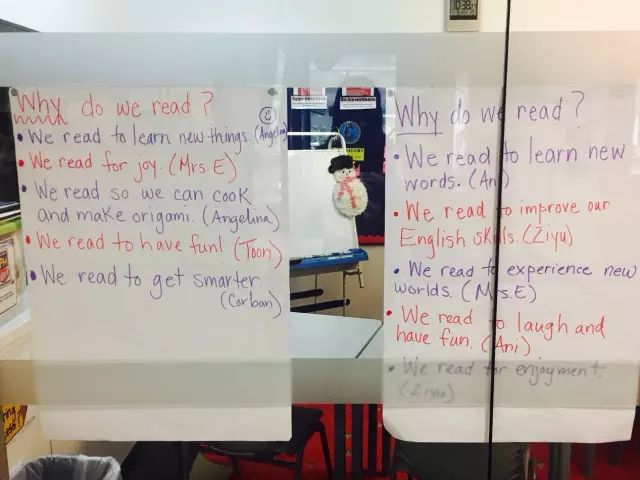 10:38
Why do we read?
• We read to learn new things. (Angelina)
• We read for joy. (Mrs. E)
• We read so we can cook
and make origami. (Angelina)
• We read to have fun! (Toon)
• We read to get smarter.
(Corban)
Why do we read?
• We read to learn new
words. (Ani)
• We read to improve our
English skills. (Ziyu)
• We read to experience new
worlds. (Mrs. E)
• We read to laugh and
have fun. (Ani)
• We read for enjoyment.
(Ziyu)